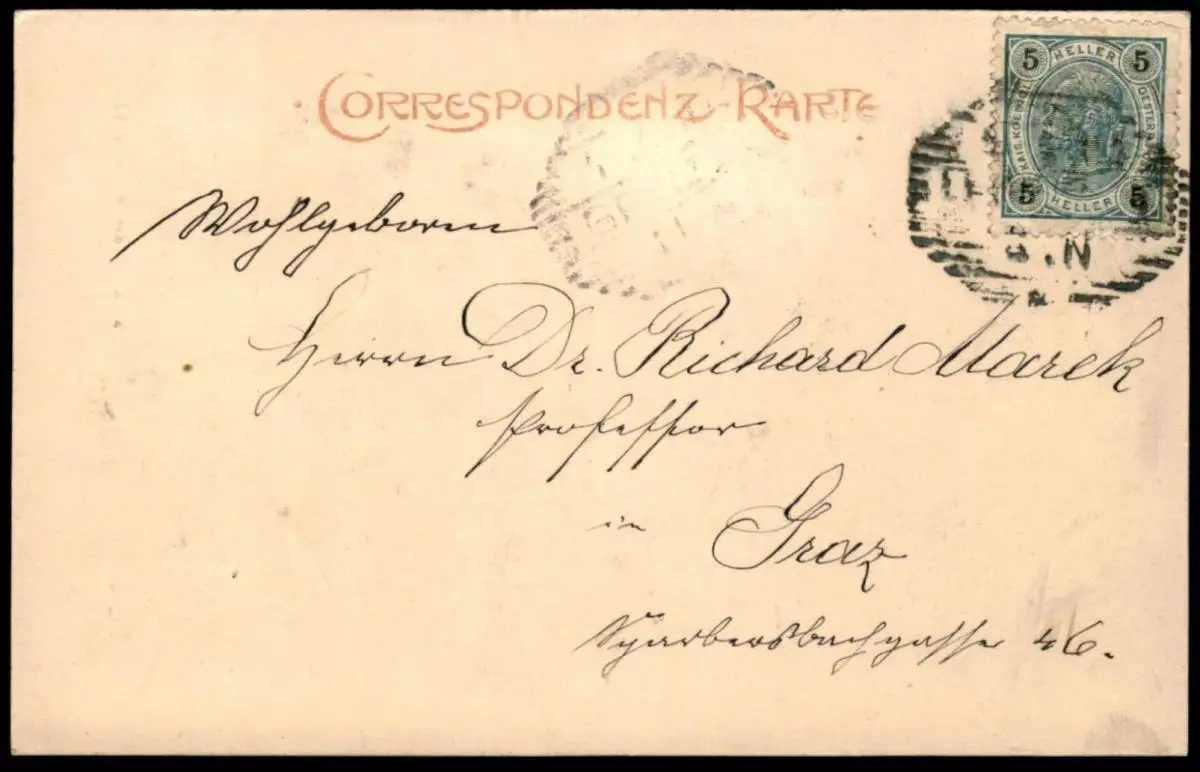 CORRESPONDENZ-KARTE
5 HELLER 5
KAIS. KOENIGL. OESTERR.
5 HELLER 5
Wohlgeboren
Herrn Dr. Richard Marek
Professor
in Graz
Sparbersbachgasse 46.